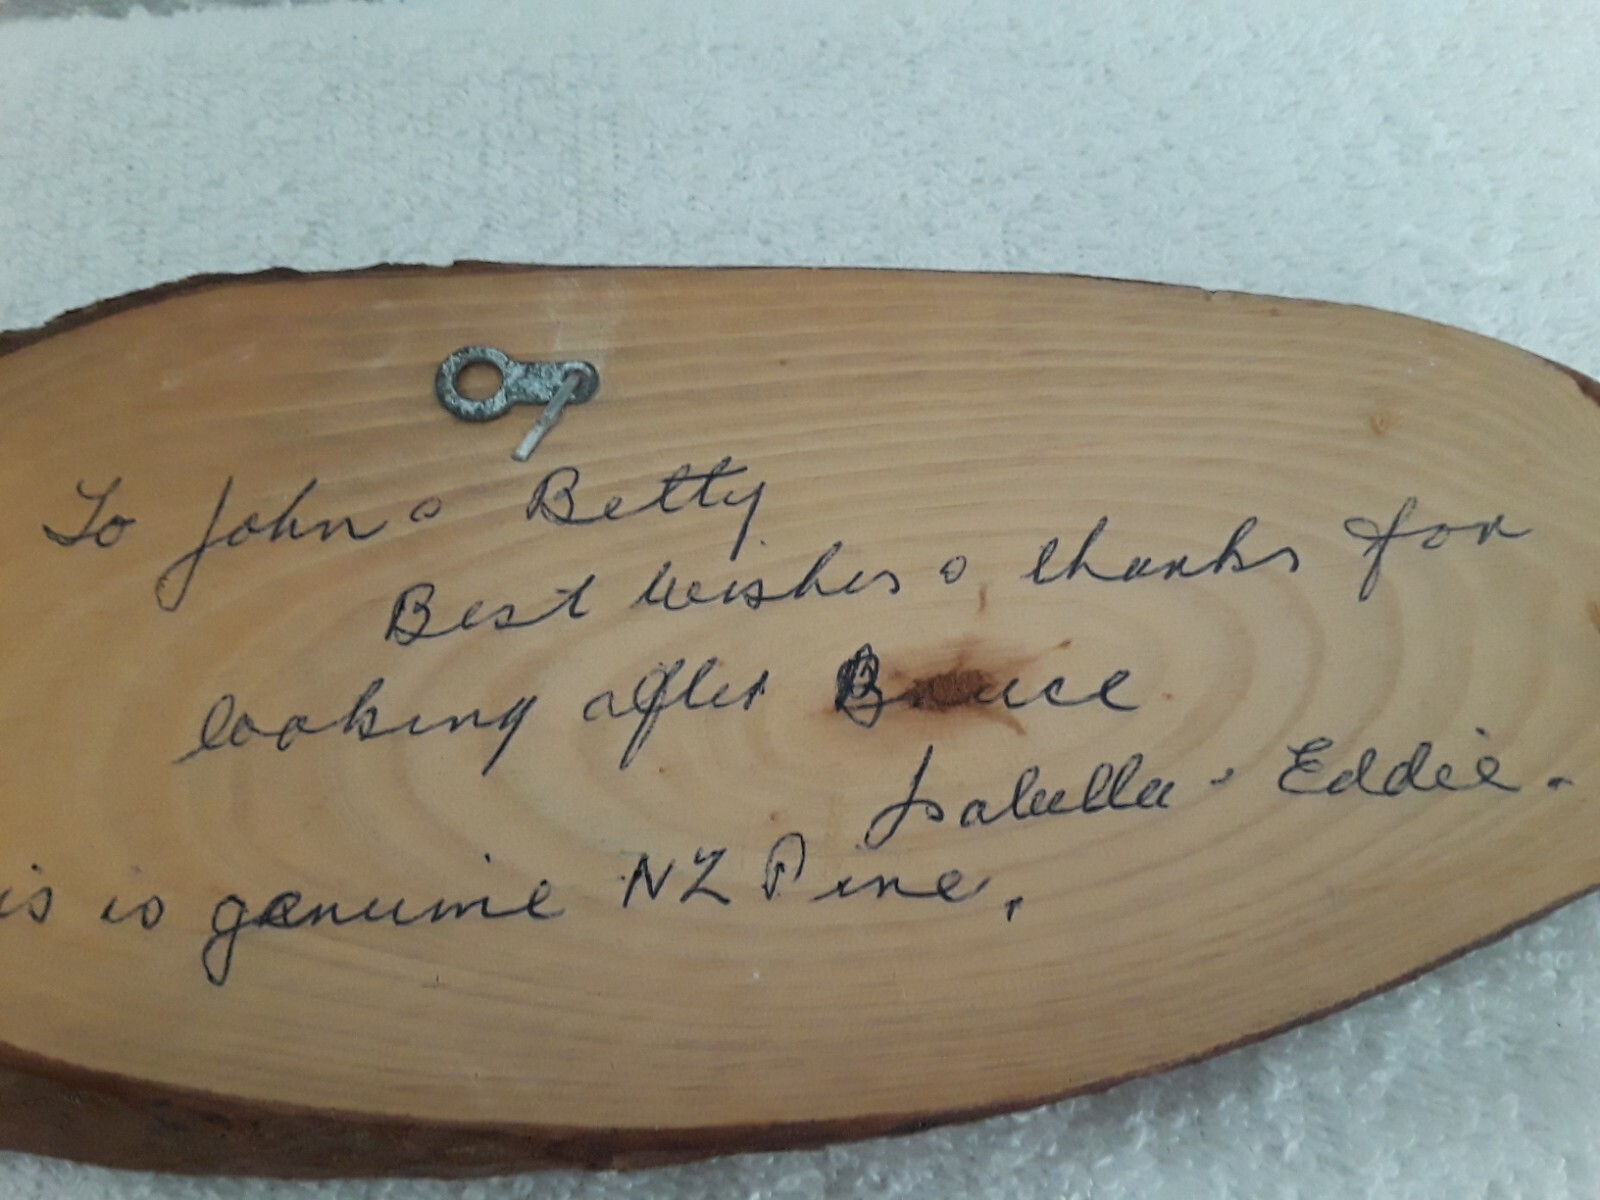 To John & Betty
Best wishes & thanks for
looking after Bruce
Isabella & Eddie.
is is genuine NZ Pine.